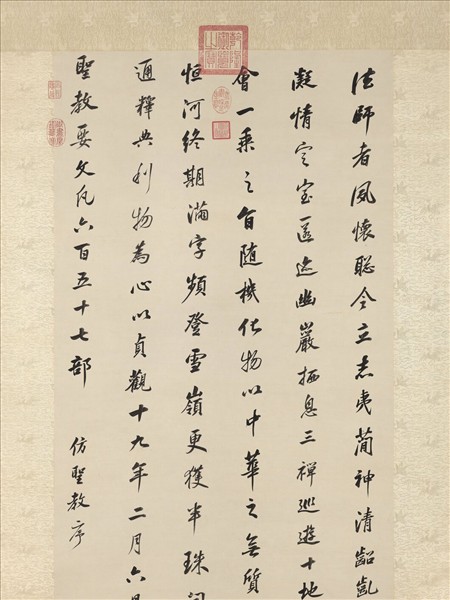 法師者夙懷聡令立志夷簡神清齠齔
凝情定室匿迹幽巖栖息三禪巡遊十地
會一乘之旨随機化物以中華之無質
恒河終期滿字頻登雪嶺更獲半珠問
通釋典利物為心以貞觀十九年二月六日
聖教要文凡六百五十七部
仿聖教序